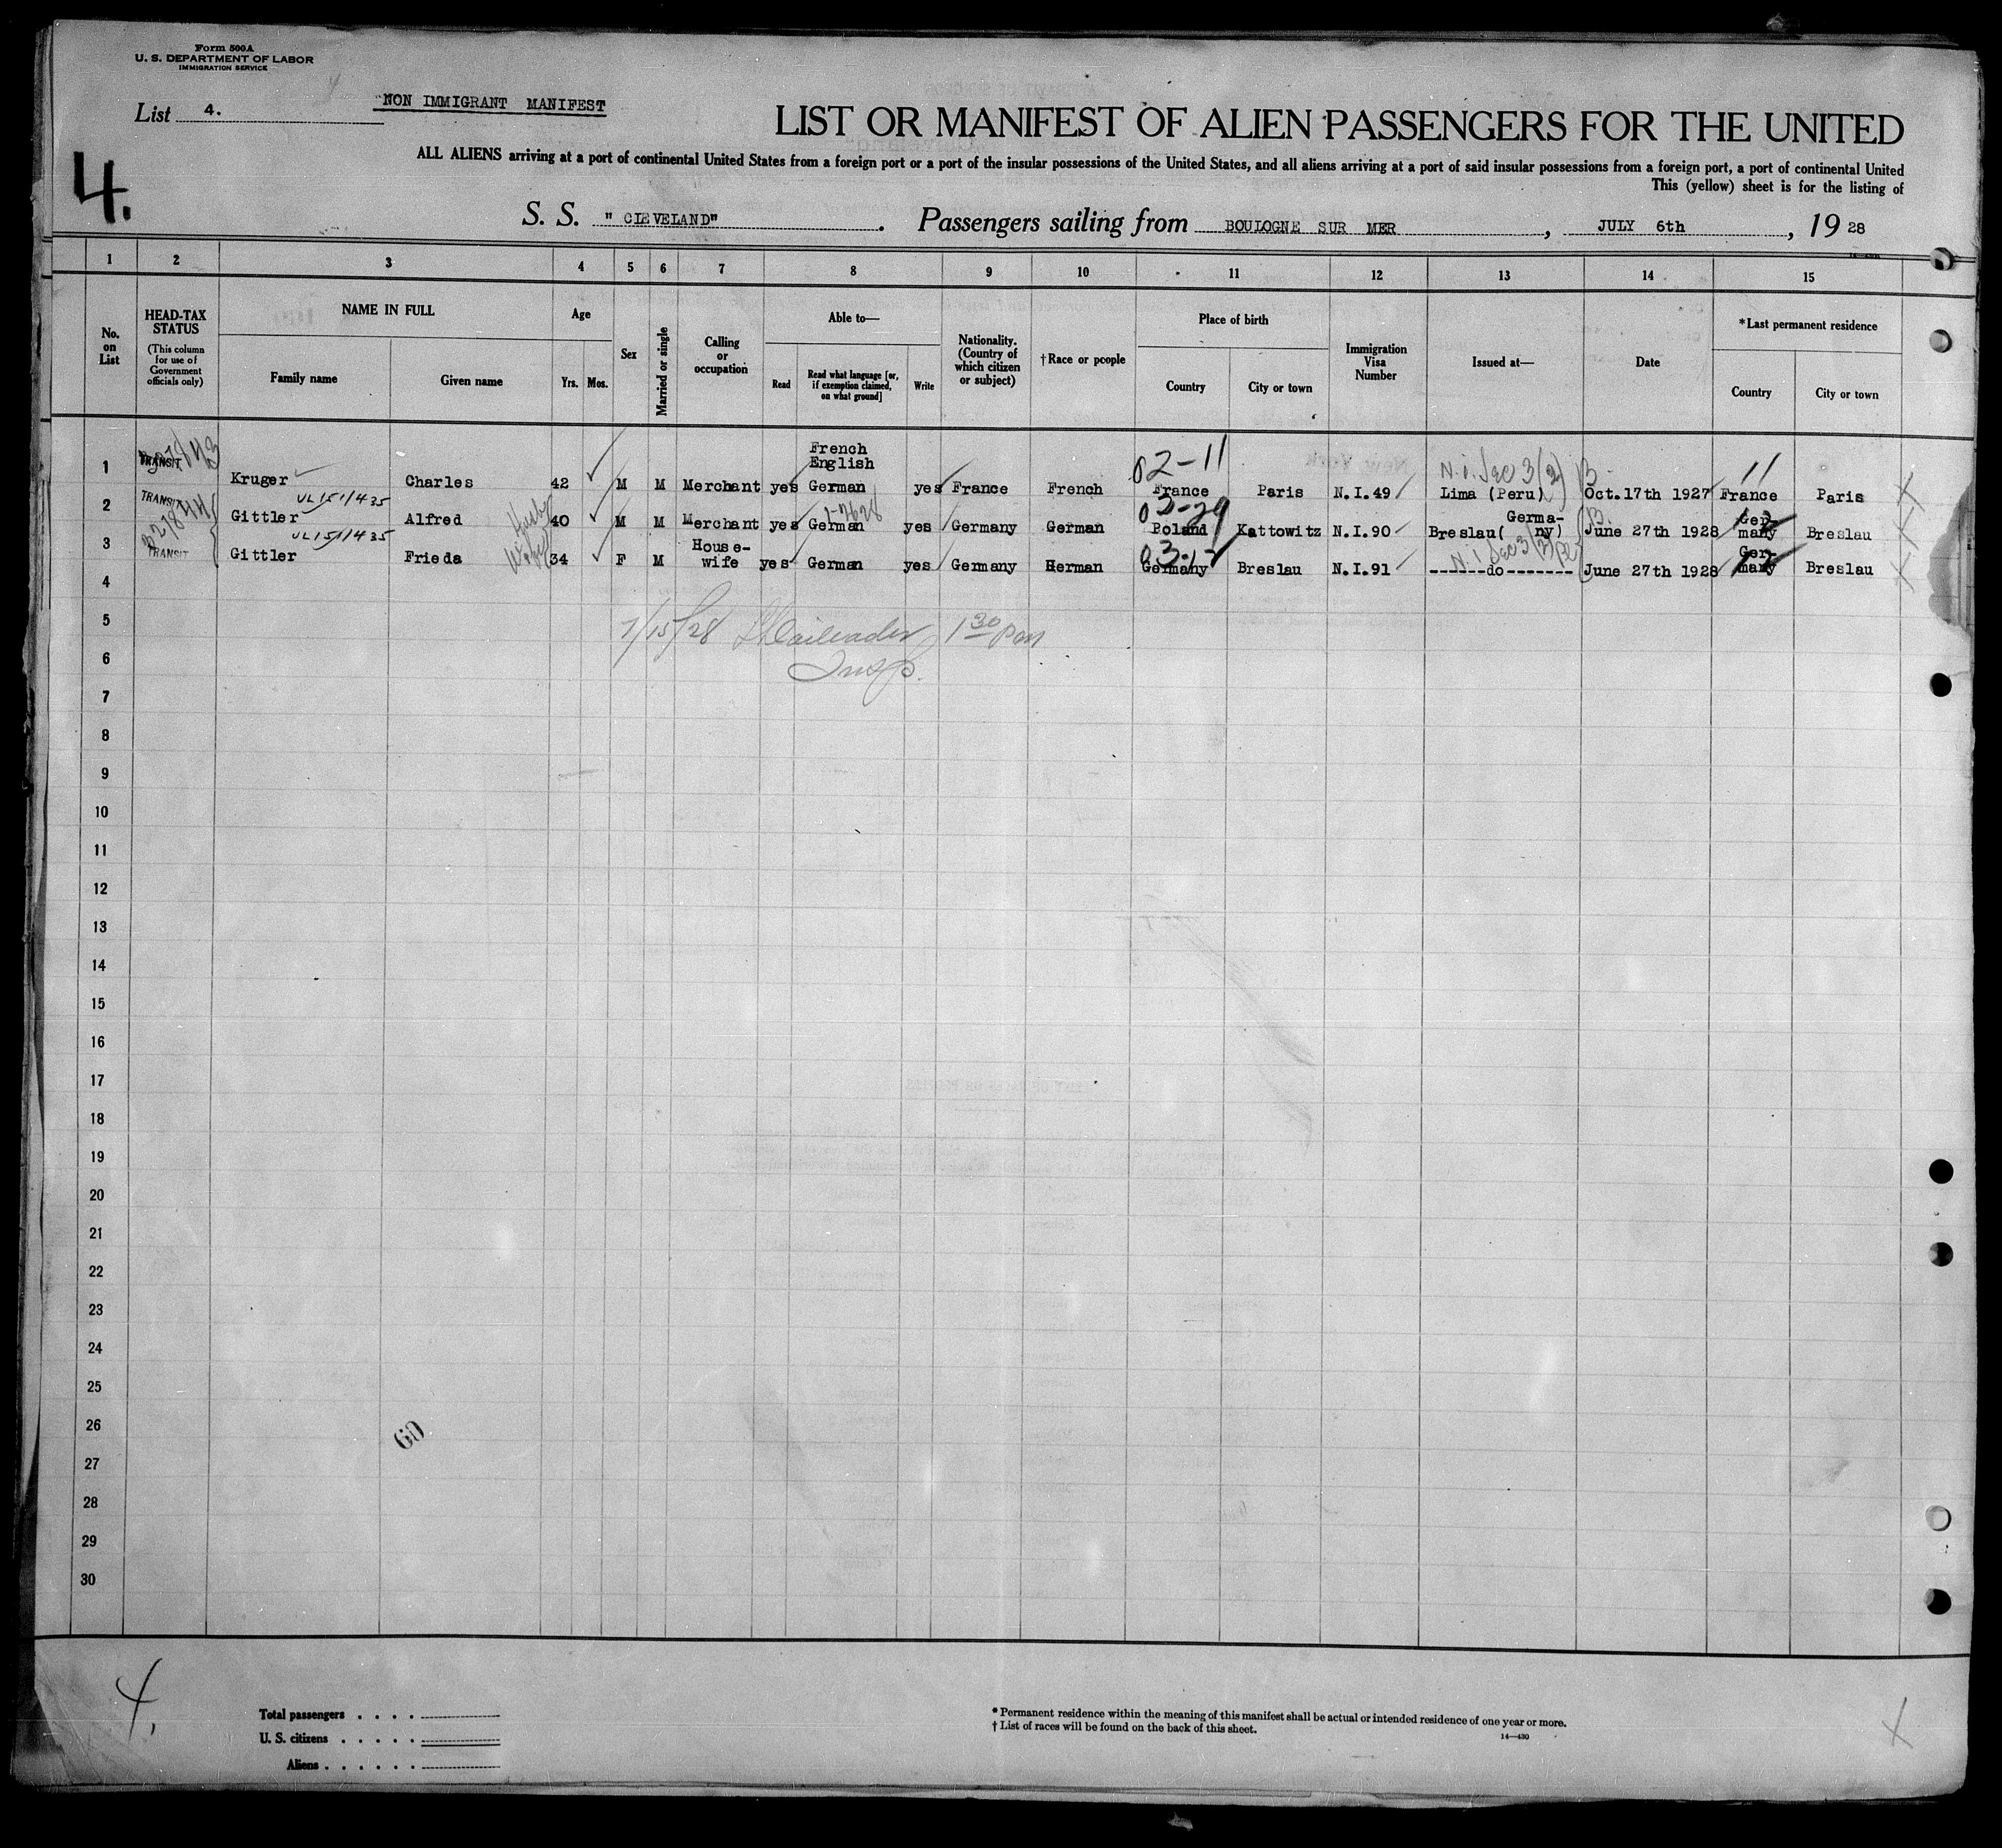 Form 500A
U. S. DEPARTMENT OF LABOR
IMMIGRATION SERVICE
List 4.
NON IMMIGRANT MANIFEST
LIST OR MANIFEST OF ALIEN PASSENGERS FOR THE UNITED
ALL ALIENS arriving at a port of continental United States from a foreign port or a port of the insular possessions of the United States, and all aliens arriving at a port of said insular possessions from a foreign port, a port of continental United
This (yellow) sheet is for the listing of
4.
S. S. "CLEVELAND". Passengers sailing from BOULOGNE SUR MER, JULY 6th, 1928
1 2 3 4 5 6 7 8 9 10 11 12 13 14 15
No. on List
HEAD-TAX STATUS
(This column for use of Government officials only)
NAME IN FULL
Family name Given name
Age
Yrs. Mos.
Sex
Married or single
Calling or occupation
Able to—
Read Read what language [or, if exemption claimed, on what ground] Write
Nationality. (Country of which citizen or subject)
†Race or people
Place of birth
Country City or town
Immigration Visa Number
Issued at—
Date
*Last permanent residence
Country City or town
1 TRANSIT Kruger Charles 42 M M Merchant yes French English German yes France French France Paris N.I.49 Lima (Peru) Oct.17th 1927 France Paris
02-11 N.I. Sec 3(2) B 11
2 TRANSIT Gittler Alfred 40 M M Merchant yes German yes Germany German Poland Kattowitz N.I.90 Breslau(Germany) June 27th 1928 Germany Breslau
VL151/435
3 TRANSIT Gittler Frieda 34 F M Housewife yes German yes Germany German Germany Breslau N.I.91 ------do------- June 27th 1928 Germany Breslau
VL151/435
Wife
4
5
7/15/28 1 30 pm
6
Insp.
7
8
9
10
11
12
13
14
15
16
17
18
19
20
21
22
23
24
25
26
60
27
28
29
30
4.
Total passengers
U. S. citizens
Aliens
* Permanent residence within the meaning of this manifest shall be actual or intended residence of one year or more.
† List of races will be found on the back of this sheet.
14—430